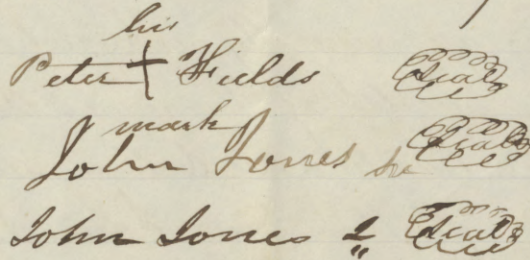 his
Peter + Fields Seal
mark
John Jones sr Seal
John Jones 2 " Seal